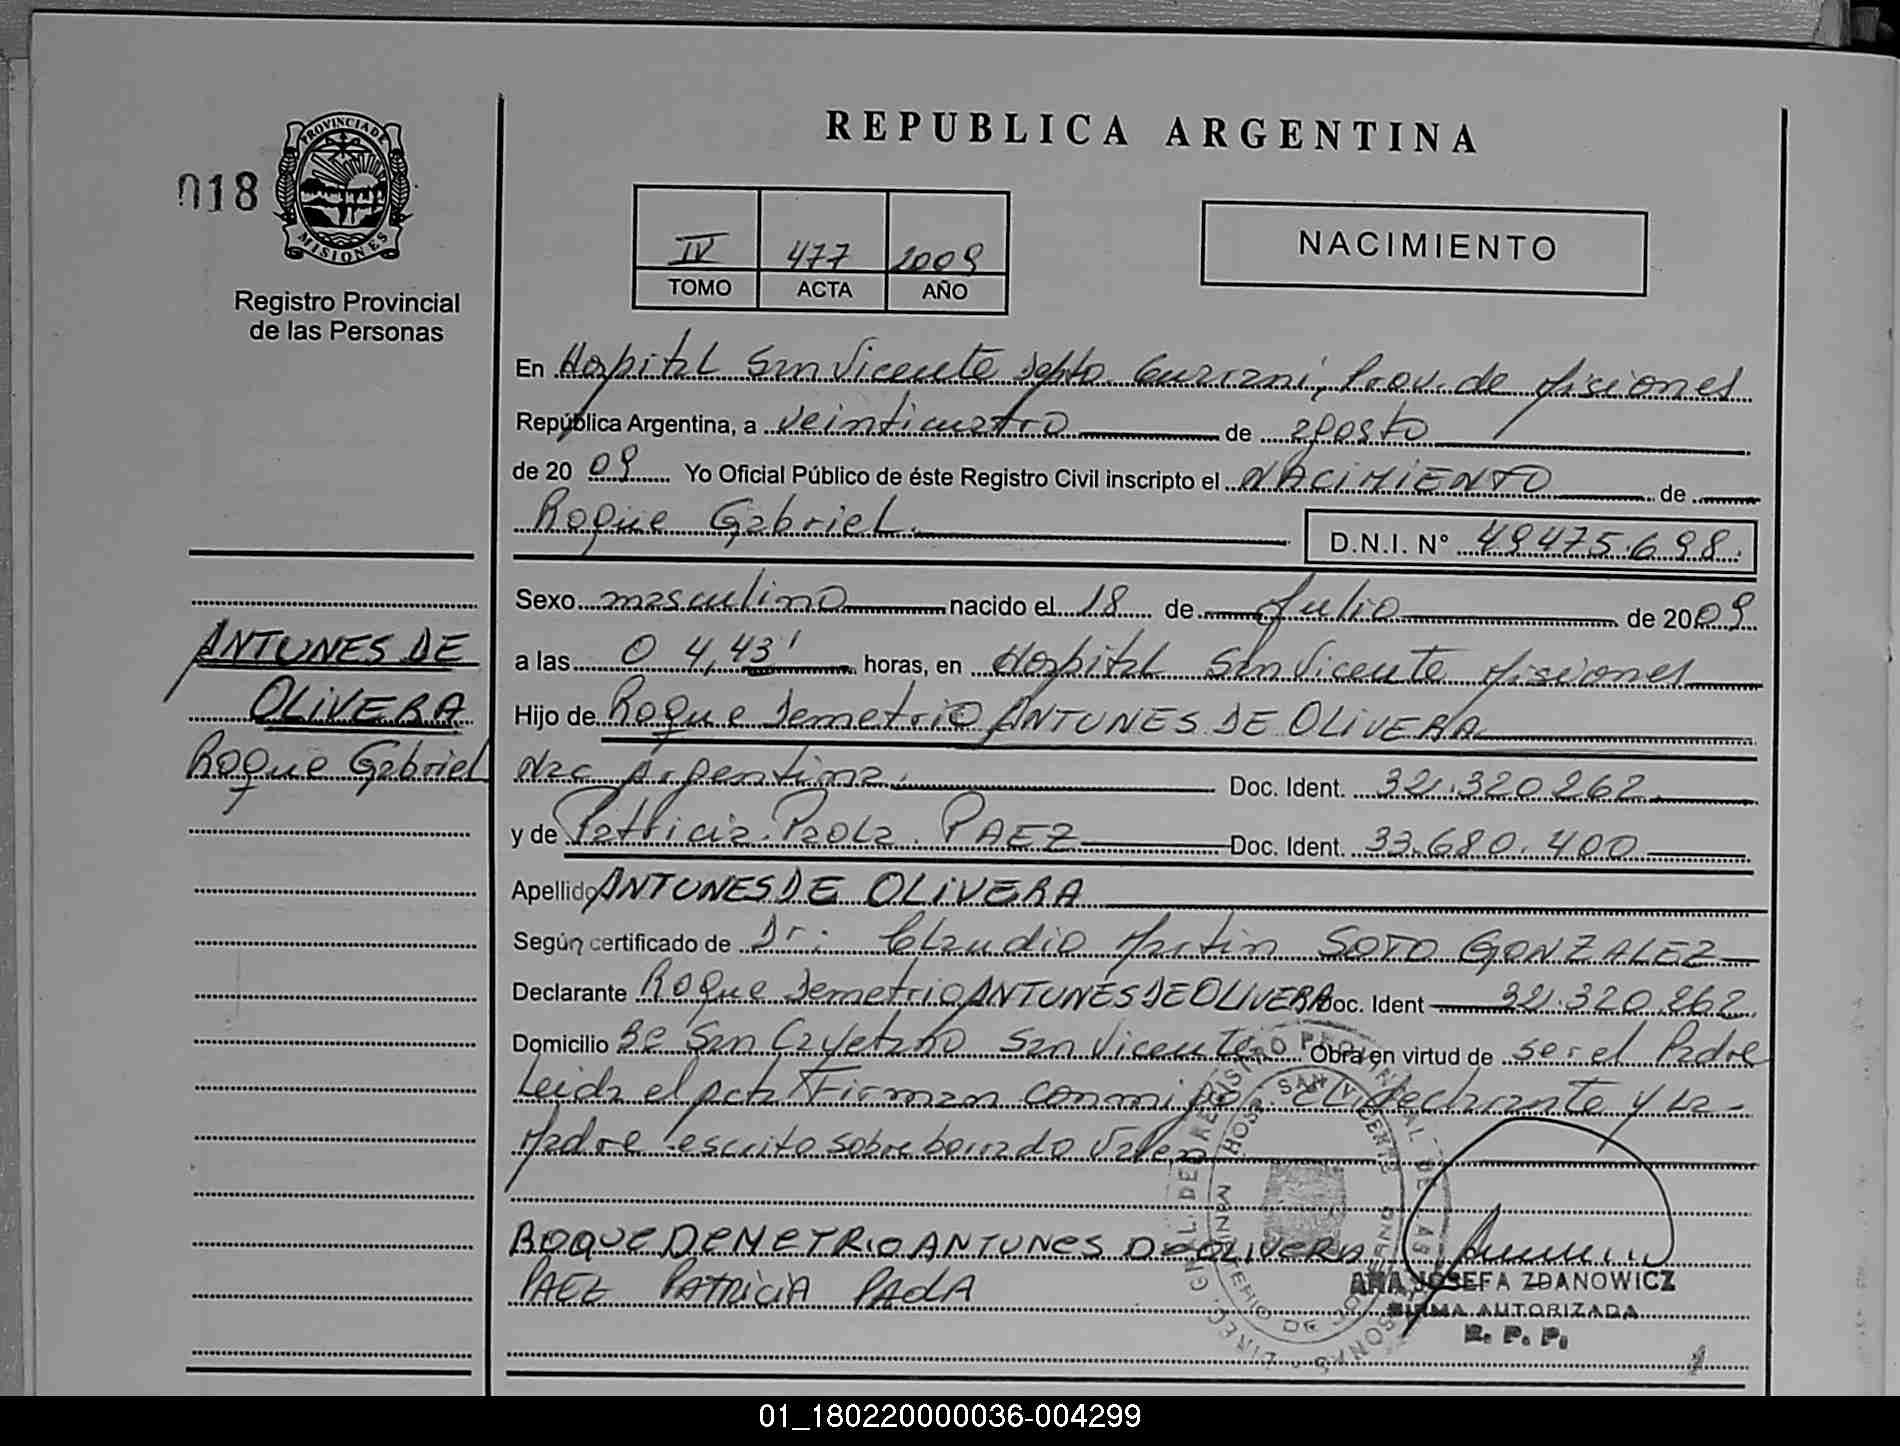 REPUBLICA ARGENTINA
018
PROVINCIA DE
MISIONES
Registro Provincial
de las Personas
IV 477 2009
TOMO ACTA AÑO
NACIMIENTO
En Hospital San Vicente Depto Guarani, Prov. de Misiones
República Argentina, a veinticuatro de agosto
de 2009 Yo Oficial Público de éste Registro Civil inscripto el NACIMIENTO de
Roque Gabriel. D.N.I. N° 49475.698.
Sexo masculino nacido el 18 de Julio de 2009
a las 04,43' horas, en Hospital San Vicente Misiones
Hijo de Roque Demetrio ANTUNES DE OLIVERA
Nac Argentina. Doc. Ident. 32.320.262
y de Patricia Paola PAEZ Doc. Ident. 33.680.400
Apellido ANTUNES DE OLIVERA
Según certificado de Dr: Claudio Martin SOTO GONZALEZ
Declarante Roque Demetrio ANTUNES DE OLIVERA Doc. Ident 32.320.262
Domicilio Bº San Cayetano San Vicente. Obra en virtud de ser el Padre
Leida el acta Firman conmigo el declarante y la-
Madre. escrito sobre borrado Vale
ROQUE DEMETRIO ANTUNES DE OLIVERA
PAEZ PATRICIA PAOLA
ANTUNES DE
OLIVERA
Roque Gabriel
HOSP. SAN VICENTE
ANA JOSEFA ZDANOWICZ
FIRMA AUTORIZADA
R. P. P.
01_180220000036-004299